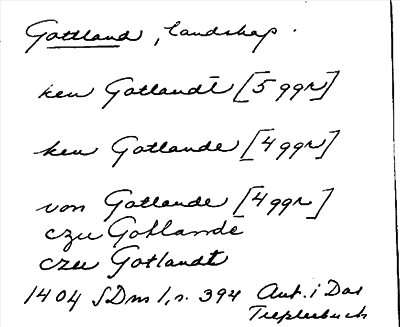 Gottland, landskap.
ken Gotlandt [5 ggr]
ken Gotlande [4 ggr]
von Gotlande [4 ggr]
czu Gotlande
czu Gotlandt
1404 SDns 1, s. 394 Ant. i Das
Tresslerbuch